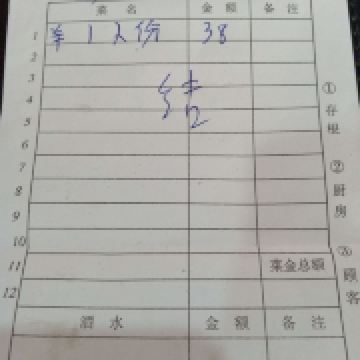 菜名 金额 备注
1 单 1人份 38
2
3 结
4
5
6
7
8
9
10
11 菜金总额
12
酒水 金额 备注
①存根
②厨房
③顾客